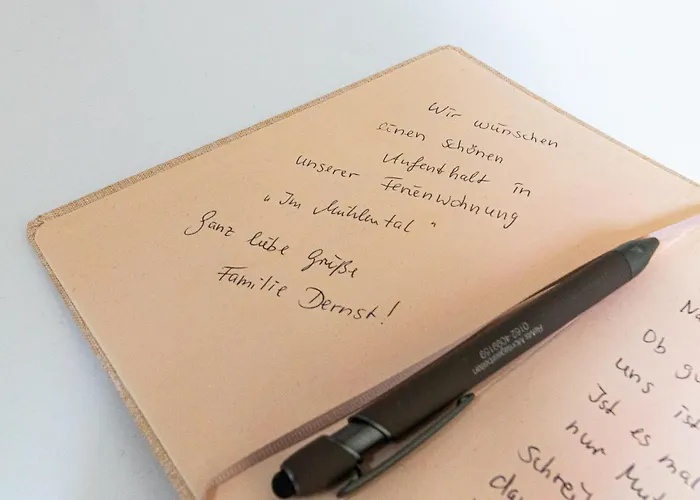 Wir wünschen
einen schönen
Aufenthalt in
unserer Ferienwohnung
"Im Mühlental"
Ganz liebe Grüße
Familie Dernst!
0162-4099159
Na
Ob gu
uns ist
Ist es mal
nur Mut
Schrei
da